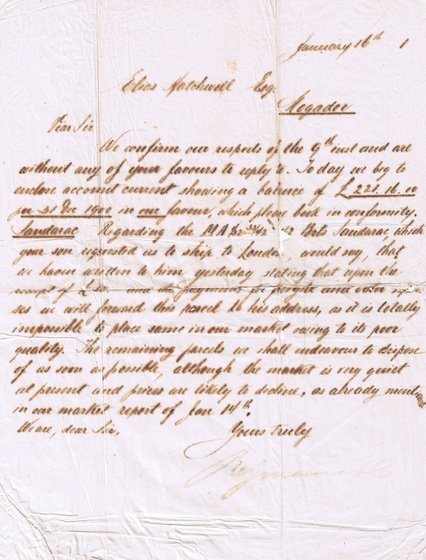 January 16th 1
Elias Esq
Mogador
Dear Sir
We confirm our respects of the 9th inst and are
without any of your favours to reply to. Today we beg to
enclose account current showing a balance of £221.16.10
per 31 Dec in our favour, which please book in conformity.
Sandarac. Regarding the Sandarac, which
your son requested us to ship to London, would say, that
we have written to him yesterday stating that upon the
receipt of and the payment for freight and other
ses we will forward this parcel to his address, as it is totally
impossible to place same in our market owing to its poor
quality. The remaining parcels we shall endeavour to dispose
of as soon as possible, although the market is very quiet
at present and prices are likely to decline, as already mentioned
in our market report of Jan 14th
We are, dear Sir,
Yours truly